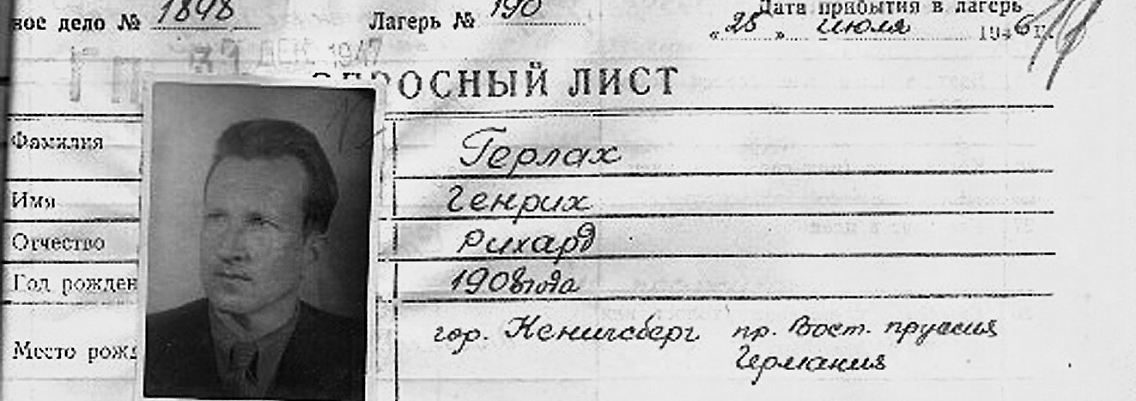 вое дело № 1898 Лагерь № 190 Дата прибытия в лагерь
«25» июля 1946 г.
31 ДЕК 1947
ОПРОСНЫЙ ЛИСТ
Фамилия Герлах
Имя Генрих
Отчество Рихард
Год рожден 1908 года
Место рожд гор. Кенигсберг пр. Вост. пруссия
Германия